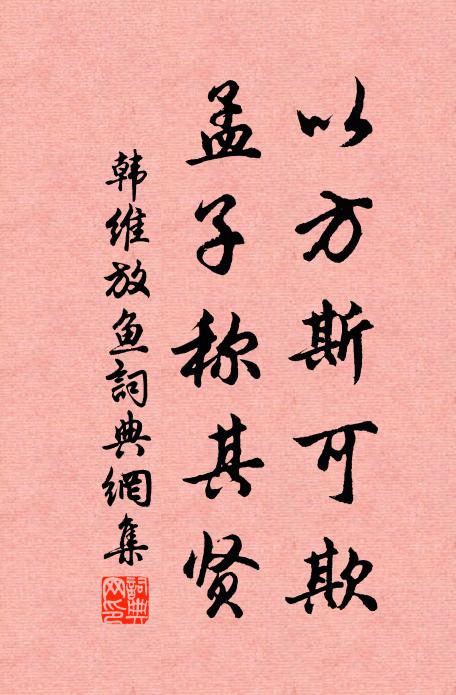 以方斯可欺
孟子称其贤
韩维放鱼詞典網集
詞典网印